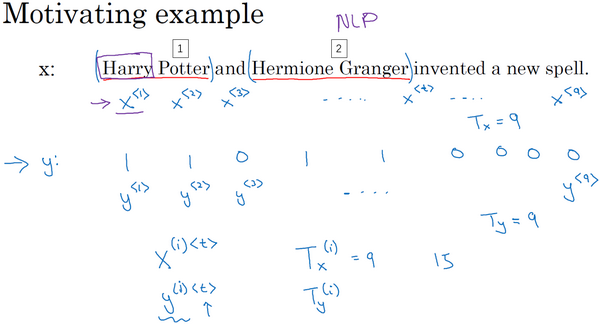 Motivating example
NLP
1 2
x: (Harry Potter) and (Hermione Granger) invented a new spell.
→ x<1> x<2> x<3> ---- x<t> ---- x<9>
Tx = 9
→ y: 1 1 0 1 1 0 0 0 0
y<1> y<2> y<3> ---- y<9>
Ty = 9
X(i)<t> Tx(i) = 9 15
y(i)<t> ↑ Ty(i)